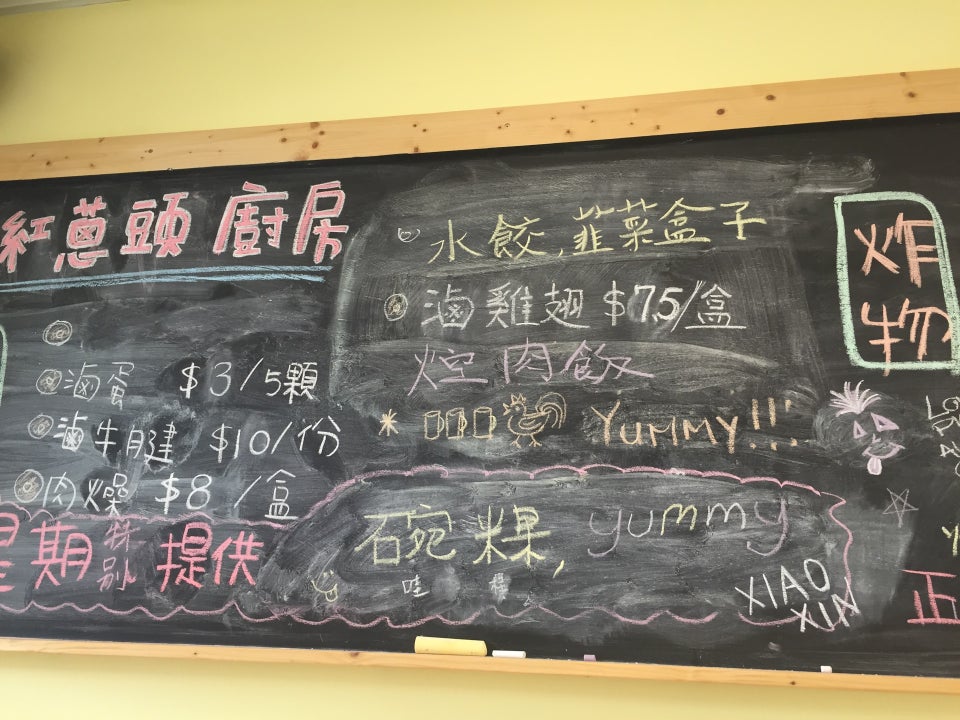 紅蔥頭廚房
滷蛋 $3/5顆
滷牛腱 $10/份
肉燥 $8/盒
星期特別提供
水餃,韮菜盒子
滷雞翅 $7.5/盒
焢肉飯
YUMMY!!!
碗粿, yummy
哇
XIAO
XIN
炸
物
正